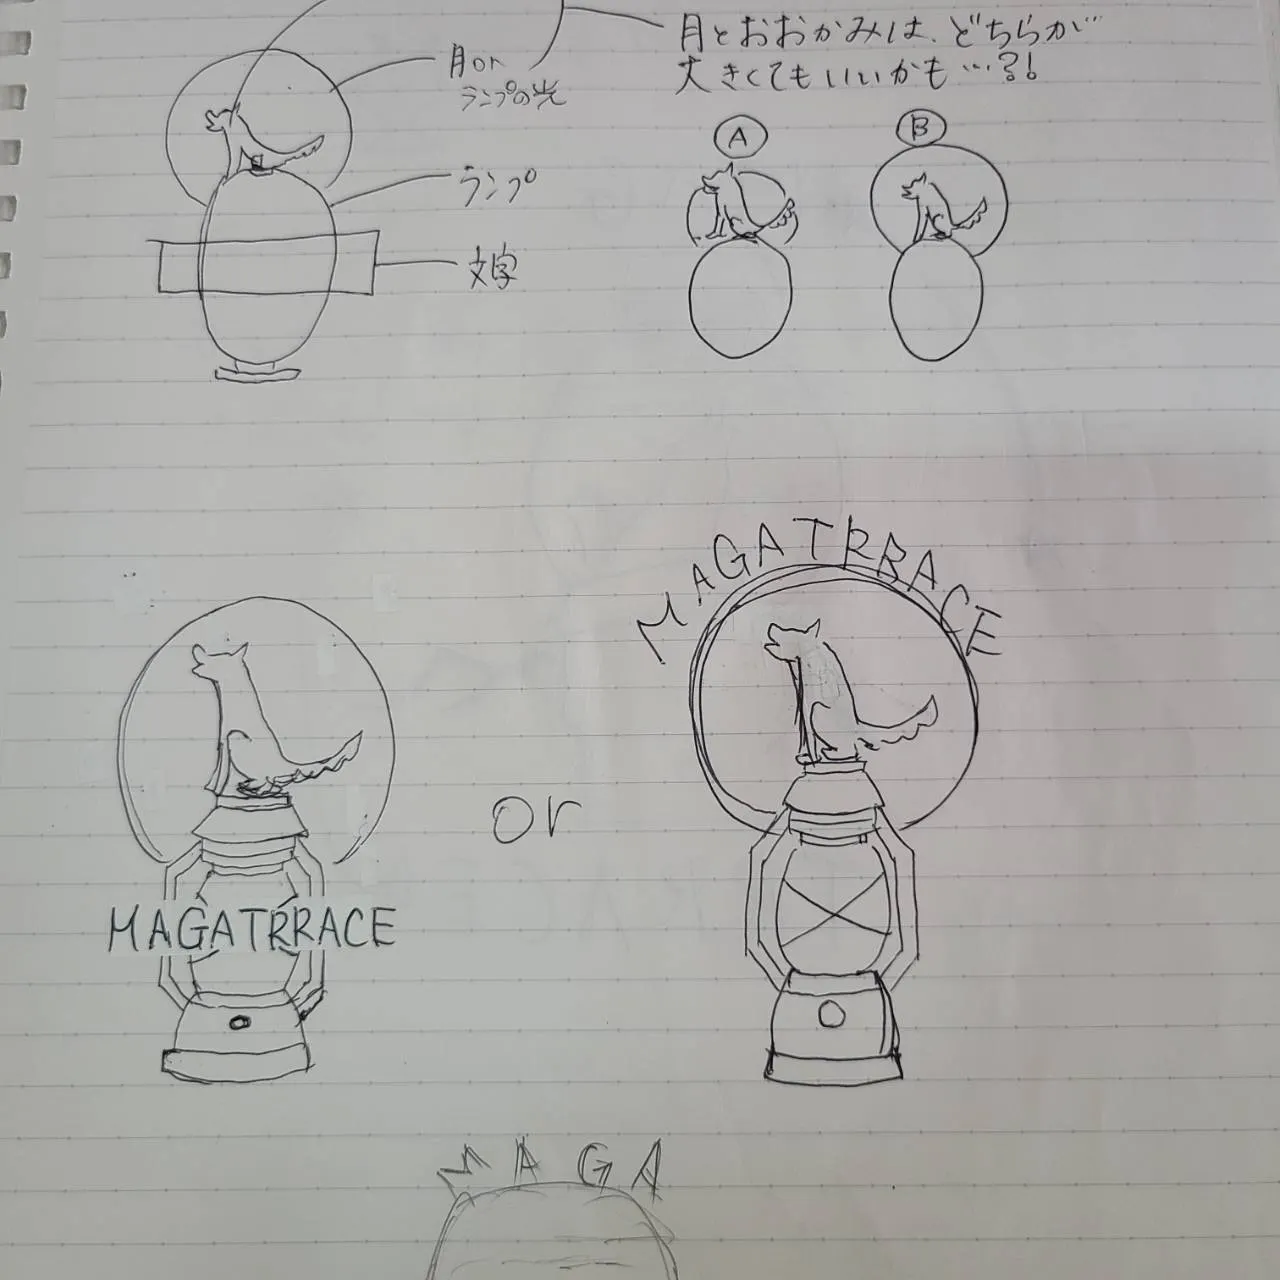 月とおおかみは、どちらが
大きくてもいいかも…?!
月or
ランプの光
ランプ
文字
A
B
MAGATRRACE
or
MAGATRRACE
MAGA